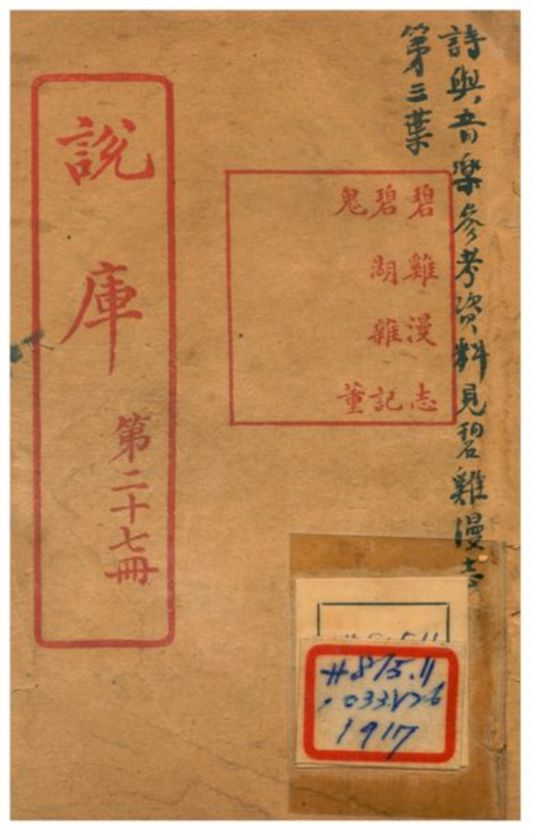 詩與音樂參考資料見碧雞漫志
第三葉
碧雞漫志
碧湖雜記
鬼董
說庫
第二十七冊
#815.11
1917